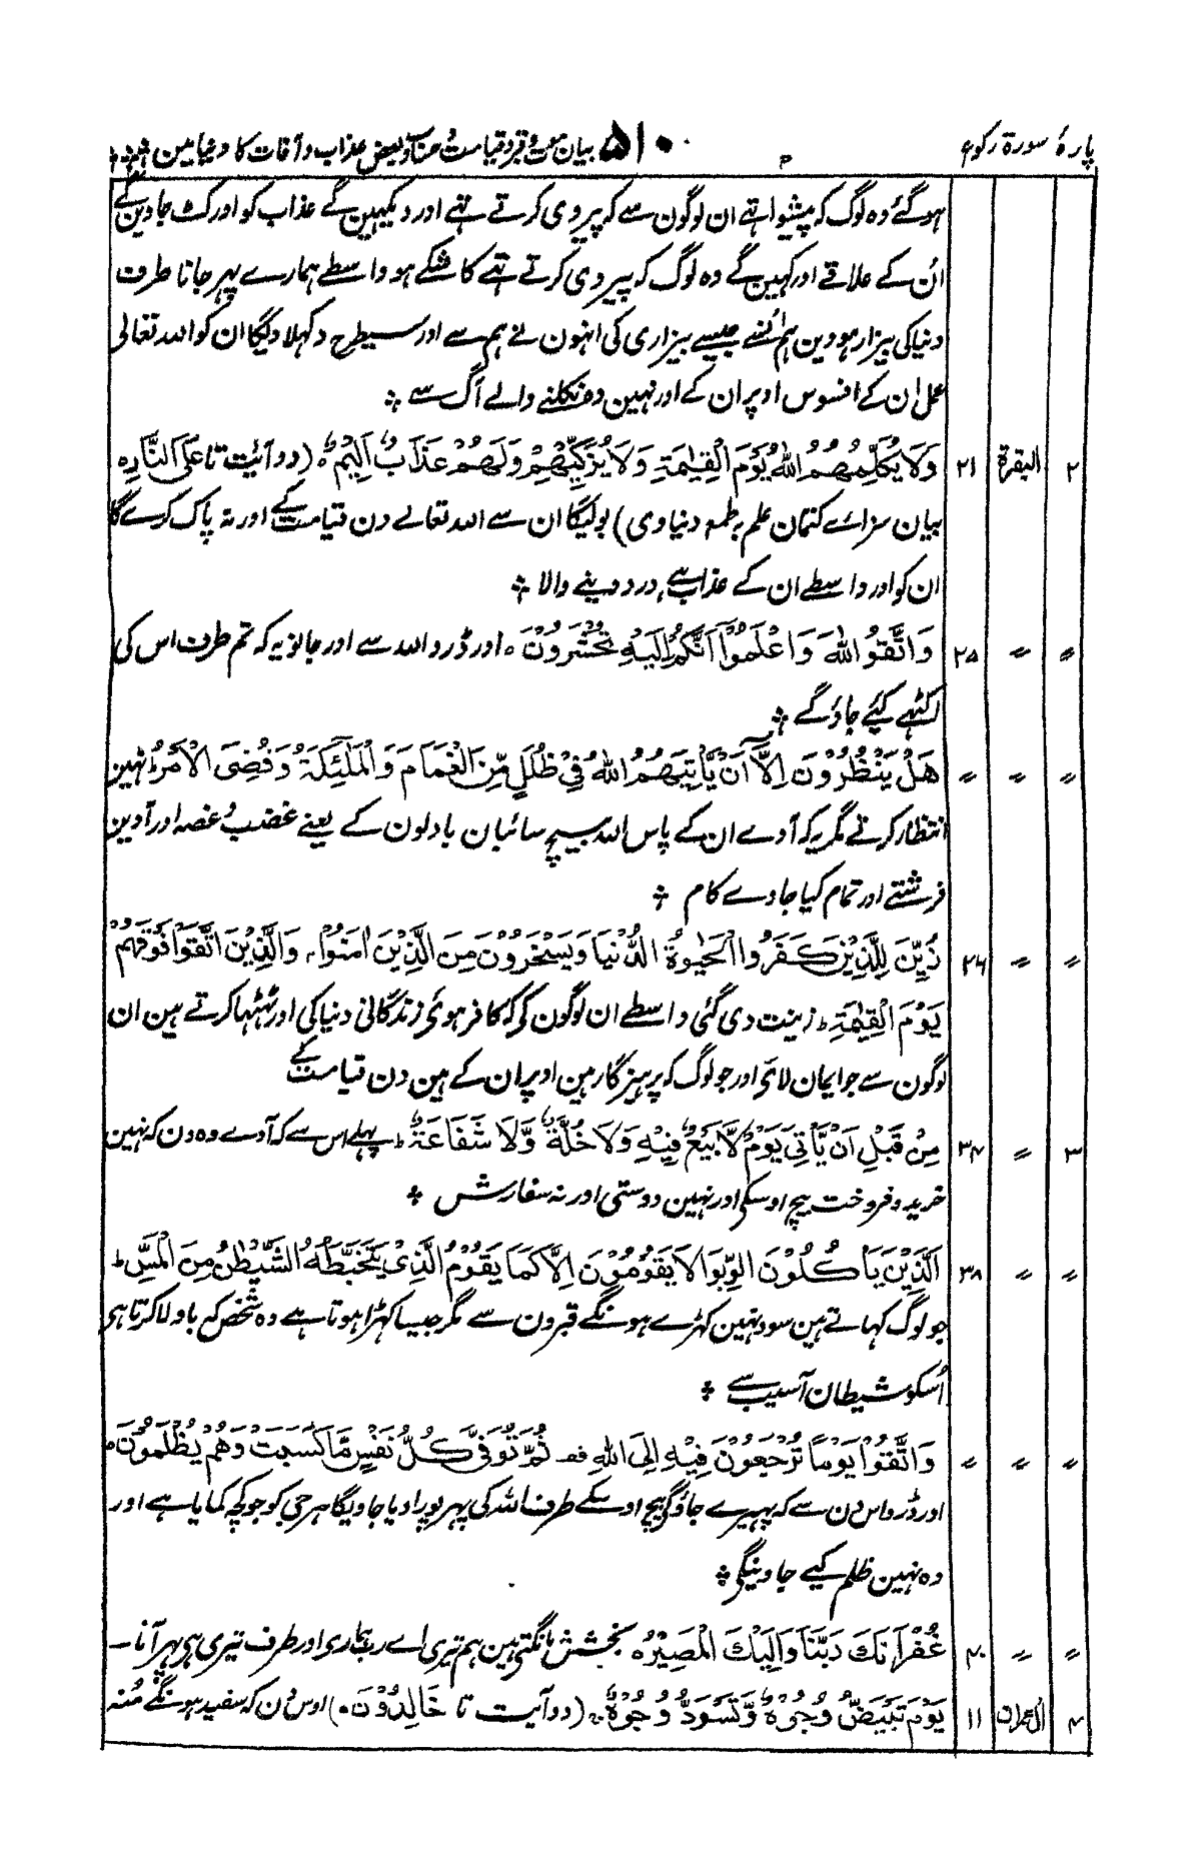 پارۂ سورۃ رکوع ۵۱۰ بیان موت و قبر و قیامت و حساب و بعض عذاب و آفات کا دنیا مین
ہو گئے وہ لوگ کہ پیشوا تہے ان لوگون سے کہ پیروی کرتے تہے اور دیکہین گے عذاب کو اور کٹ جاوین گے
ان کے علاقے اور کہین گے وہ لوگ کہ پیروی کرتے تہے کاشکے ہو واسطے ہمارے پہر جانا طرف
دنیا کی بیزار ہو وین ہم اُنسے جیسے بیزاری کی انہون نے ہم سے اور اسیطرح دکہلا دیگا ان کو اللہ تعالی
عمل ان کے افسوس اوپر ان کے اور نہین وہ نکلنے والے آگ سے
۲ البقرۃ ۲۱ وَلَا يُكَلِّمُهُمُ اللّٰهُ يَوْمَ الْقِيٰمَةِ وَلَا يُزَكِّيْهِمْ وَلَهُمْ عَذَابٌ اَلِيْمٌ (دو آیت تا عَلَى النَّارِ
بیان سزائے کتمان علم بطمع دنیاوی) بولیگا ان سے اللہ تعالے دن قیامت کے اور نہ پاک کرے گا
ان کو اور واسطے ان کے عذاب ہے درد دینے والا
〃 〃 ۲۵ وَاتَّقُوا اللّٰهَ وَاعْلَمُوْا اَنَّكُمْ اِلَيْهِ تُحْشَرُوْنَ ٥ اور ڈرو اللہ سے اور جانو یہ کہ تم طرف اس کی
اکٹہے کیئے جاؤ گے
〃 〃 〃 هَلْ يَنْظُرُوْنَ اِلَّا اَنْ يَّاْتِيَهُمُ اللّٰهُ فِيْ ظُلَلٍ مِّنَ الْغَمَامِ وَالْمَلٰئِكَةُ وَقُضِىَ الْاَمْرُ نہین
انتظار کرتے مگر یہ کہ آوے ان کے پاس اللہ بیچ سائبان بادلون کے یعنے غضب و غصہ اور آوین
فرشتے اور تمام کیا جاوے کام
〃 〃 ۲۶ زُيِّنَ لِلَّذِيْنَ كَفَرُوا الْحَيٰوةُ الدُّنْيَا وَيَسْخَرُوْنَ مِنَ الَّذِيْنَ اٰمَنُوْا وَالَّذِيْنَ اتَّقَوْا فَوْقَهُمْ
يَوْمَ الْقِيٰمَةِ زینت دی گئی واسطے ان لوگون کی کہ کافر ہوئے زندگانی دنیا کی اور ٹہٹہا کرتے ہین ان
لوگون سے جو ایمان لائے اور جو لوگ کہ پرہیزگار ہین اوپر ان کے ہین دن قیامت کے
۳ 〃 ۳۴ مِنْ قَبْلِ اَنْ يَّاْتِيَ يَوْمٌ لَّا بَيْعٌ فِيْهِ وَلَا خُلَّةٌ وَّلَا شَفَاعَةٌ پہلے اس سے کہ آوے وہ دن کہ نہین
خرید و فروخت بیچ اوسکی اور نہین دوستی اور نہ سفارش
〃 〃 ۳۸ اَلَّذِيْنَ يَاْكُلُوْنَ الرِّبٰوا لَا يَقُوْمُوْنَ اِلَّا كَمَا يَقُوْمُ الَّذِيْ يَتَخَبَّطُهُ الشَّيْطٰنُ مِنَ الْمَسِّ ط
جو لوگ کہاتے ہین سود نہین کہڑے ہونگے قبرون سے مگر جیسا کہڑا ہوتا ہے وہ شخص کہ باولا کرتا ہی
اُسکو شیطان آسیب سے
〃 〃 〃 وَاتَّقُوْا يَوْمًا تُرْجَعُوْنَ فِيْهِ اِلَى اللّٰهِ قف ثُمَّ تُوَفّٰى كُلُّ نَفْسٍ مَّا كَسَبَتْ وَهُمْ لَا يُظْلَمُوْنَ ٥
اور ڈرو اس دن سے کہ پہیرے جاؤگے بیچ اوسکے طرف اللہ کی پہر پورا دیا جاویگا ہر جی کو جو کچہ کمایا ہے اور
وہ نہین ظلم کیے جاوینگے
〃 〃 ۴۰ غُفْرَانَكَ رَبَّنَا وَاِلَيْكَ الْمَصِيْرُ ٥ بخشش مانگتے ہین ہم تیری اے رب ہماری اور طرف تیری ہی پہر آنا
۴ آل عمران ۱۱ يَوْمَ تَبْيَضُّ وُجُوْهٌ وَّتَسْوَدُّ وُجُوْهٌ (دو آیت تا خَالِدُوْنَ ٥) اوس دن کہ سفید ہونگے مُنہ